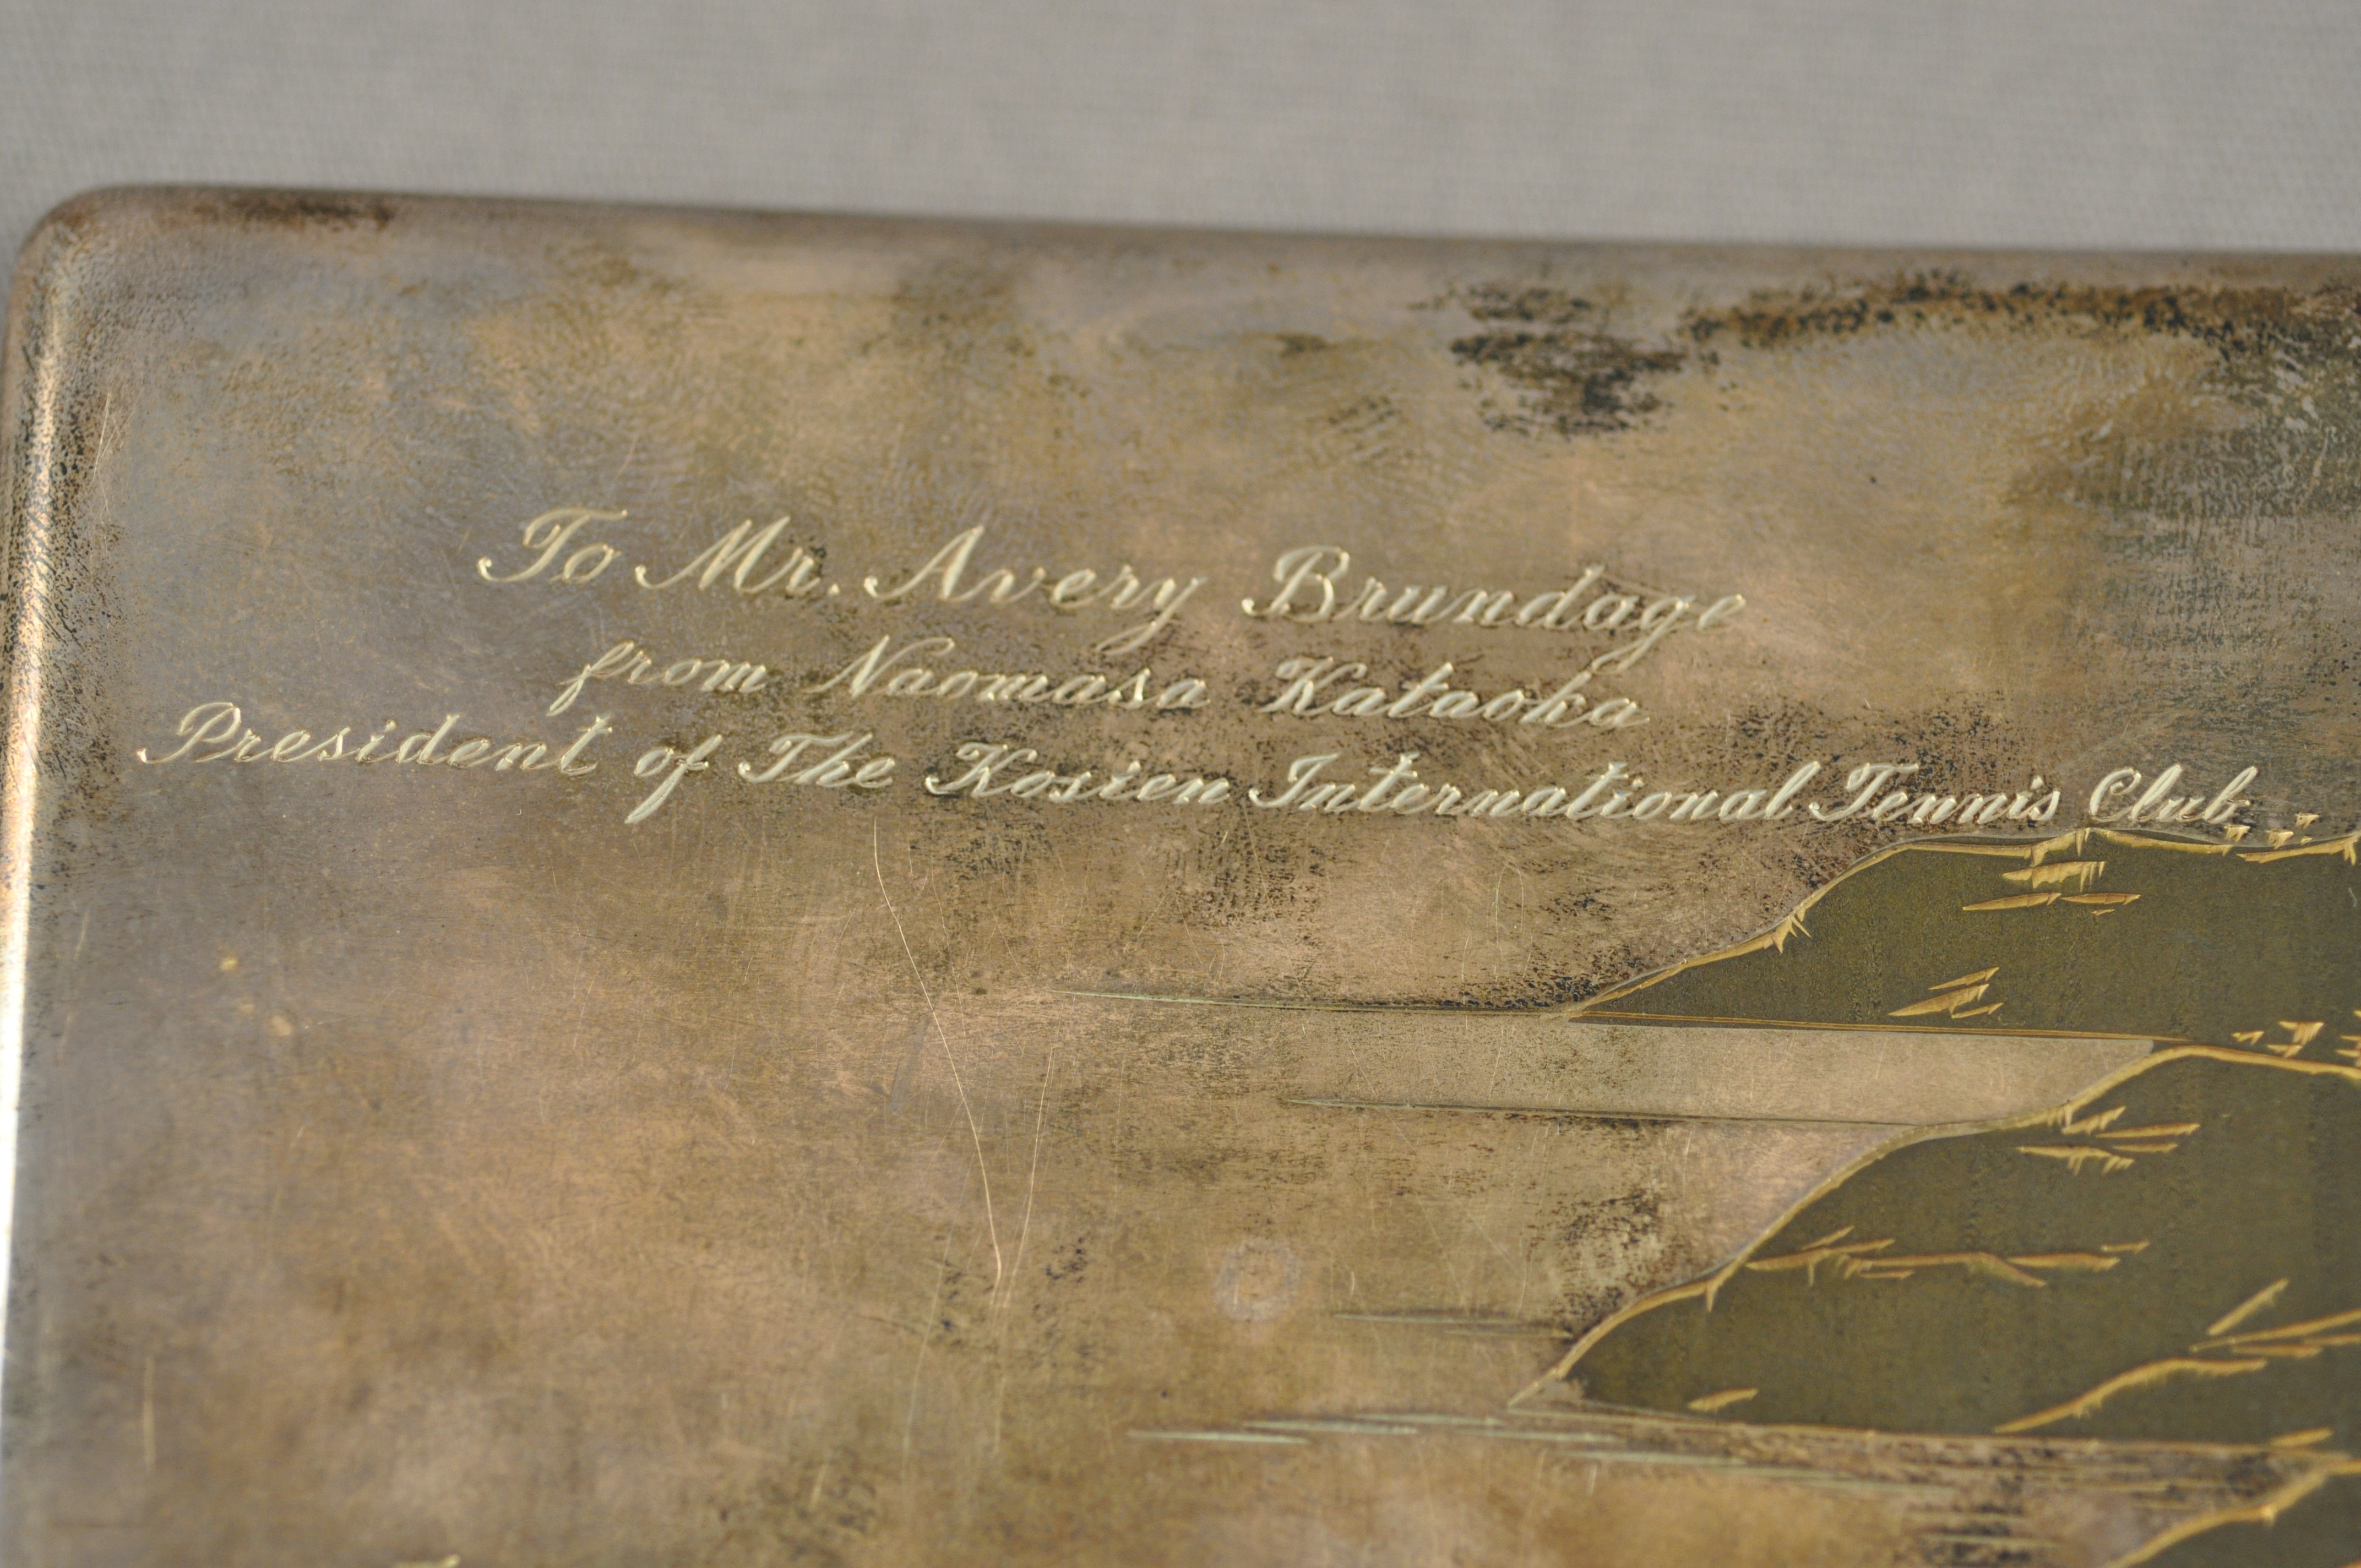 To Mr. Avery Brundage
from Naomasa Kataoka
President of The Kosien International Tennis Club